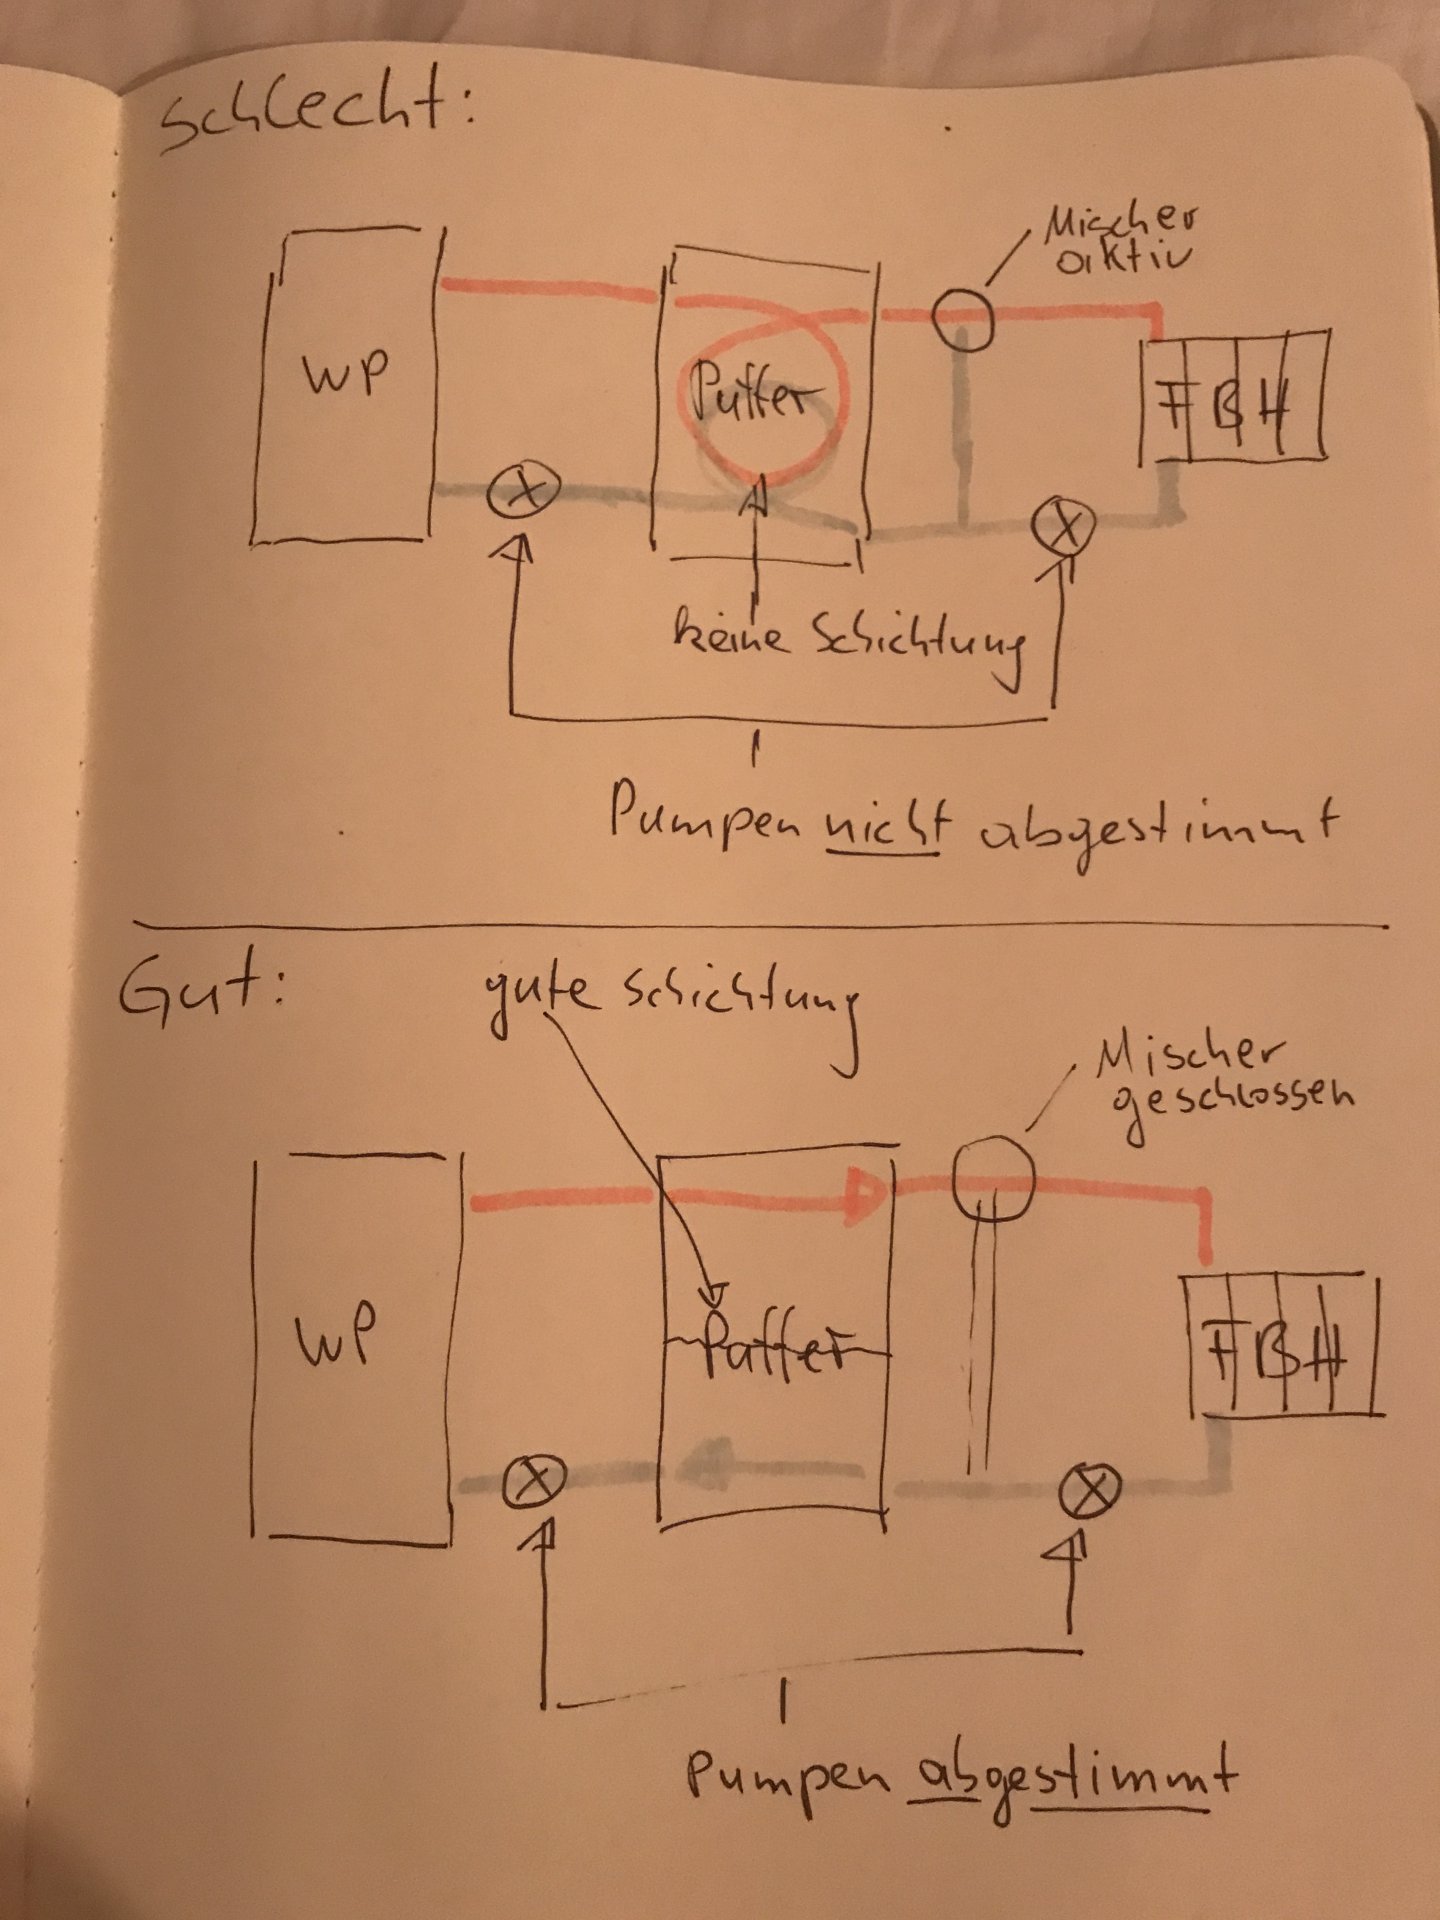 Schlecht:
Mischer
aktiv
WP
Puffer
FBH
keine Schichtung
Pumpen nicht abgestimmt
Gut:
gute Schichtung
Mischer
geschlossen
WP
Puffer
FBH
Pumpen abgestimmt